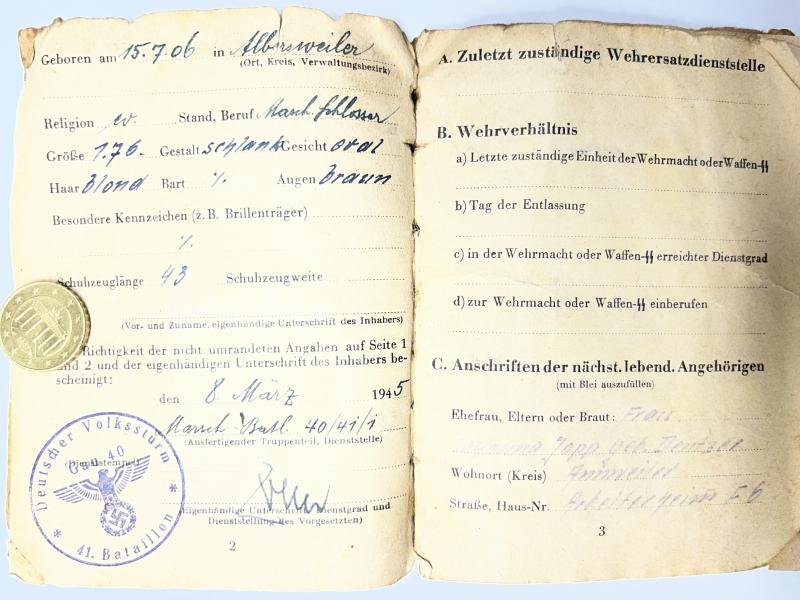 Geboren am 15.7.06 in Albersweiler
(Ort, Kreis, Verwaltungsbezirk)
Religion ev. Stand, Beruf Masch. Schlosser
Größe 1.76. Gestalt schlank Gesicht oval
Haar blond Bart ./. Augen braun
Besondere Kennzeichen (z. B. Brillenträger)
./.
Schuhzeuglänge 43 Schuhzeugweite
(Vor- und Zuname, eigenhändige Unterschrift des Inhabers)
Richtigkeit der nicht umrandeten Angaben auf Seite 1
und 2 und der eigenhändigen Unterschrift des Inhabers be-
scheinigt:
den 8. März 1945
Marsch-Batl. 40/41/i
(Ausfertigender Truppenteil, Dienststelle)
(Dienststempel)
(Eigenhändige Unterschrift, Dienstgrad und
Dienststellung des Vorgesetzten)
Deutscher Volkssturm
Gau 40
* 41. Bataillon *
2
A. Zuletzt zuständige Wehrersatzdienststelle
B. Wehrverhältnis
a) Letzte zuständige Einheit der Wehrmacht oder Waffen-ᛋᛋ
b) Tag der Entlassung
c) in der Wehrmacht oder Waffen-ᛋᛋ erreichter Dienstgrad
d) zur Wehrmacht oder Waffen-ᛋᛋ einberufen
C. Anschriften der nächst. lebend. Angehörigen
(mit Blei auszufüllen)
Ehefrau, Eltern oder Braut: Frau
Japp geb. Dentzer
Wohnort (Kreis) Annweiler
Straße, Haus-Nr. Arbeiterheim E6
3